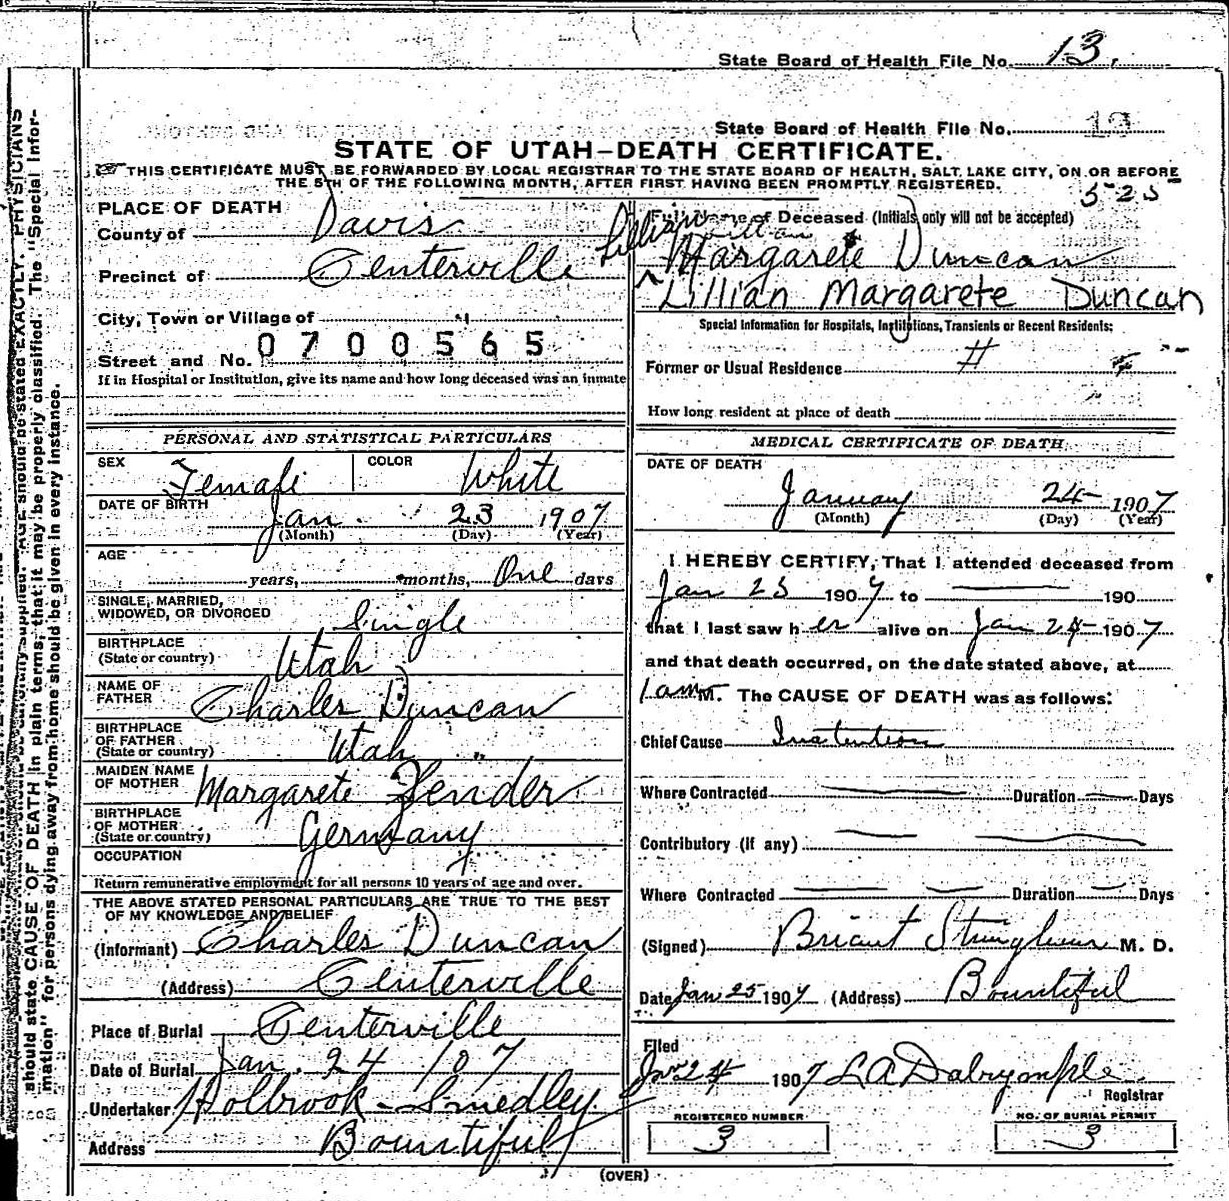 State Board of Health File No. 13.
State Board of Health File No. 13
STATE OF UTAH—DEATH CERTIFICATE.
THIS CERTIFICATE MUST BE FORWARDED BY LOCAL REGISTRAR TO THE STATE BOARD OF HEALTH, SALT LAKE CITY, ON OR BEFORE
THE 5TH OF THE FOLLOWING MONTH, AFTER FIRST HAVING BEEN PROMPTLY REGISTERED.
525
PLACE OF DEATH
County of Davis
Precinct of Centerville
City, Town or Village of
Street and No. 0700565
If in Hospital or Institution, give its name and how long deceased was an inmate
Full Name of Deceased (Initials only will not be accepted)
Lillian
Margarete Duncan
Lillian Margarete Duncan
Special Information for Hospitals, Institutions, Transients or Recent Residents:
Former or Usual Residence
How long resident at place of death
PERSONAL AND STATISTICAL PARTICULARS
SEX Female COLOR White
DATE OF BIRTH Jan. 23 1907
(Month) (Day) (Year)
AGE
years, months, One days
SINGLE, MARRIED,
WIDOWED, OR DIVORCED Single
BIRTHPLACE
(State or country) Utah
NAME OF
FATHER Charles Duncan
BIRTHPLACE
OF FATHER
(State or country) Utah
MAIDEN NAME
OF MOTHER Margarete Fender
BIRTHPLACE
OF MOTHER
(State or country) Germany
OCCUPATION
Return remunerative employment for all persons 10 years of age and over.
THE ABOVE STATED PERSONAL PARTICULARS ARE TRUE TO THE BEST
OF MY KNOWLEDGE AND BELIEF
(Informant) Charles Duncan
(Address) Centerville
Place of Burial Centerville
Date of Burial Jan. 24 1907
Undertaker Holbrook-Smedley
Address Bountiful
MEDICAL CERTIFICATE OF DEATH
DATE OF DEATH
January 24 1907
(Month) (Day) (Year)
I HEREBY CERTIFY, That I attended deceased from
Jan 23 1907 to 190
that I last saw her alive on Jan 24 1907
and that death occurred, on the date stated above, at
1 am M. The CAUSE OF DEATH was as follows:
Chief Cause
Where Contracted Duration Days
Contributory (if any)
Where Contracted Duration Days
(Signed) Briant Stringham M. D.
Date Jan 25 1907 (Address) Bountiful
Filed
Jan 24 1907 L A Dalrymple
Registrar
REGISTERED NUMBER
3
NO. OF BURIAL PERMIT
3
(OVER)
AGE should be stated EXACTLY. PHYSICIANS
should state CAUSE OF DEATH in plain terms, that it may be properly classified. The "Special Infor-
mation" for persons dying away from home should be given in every instance.